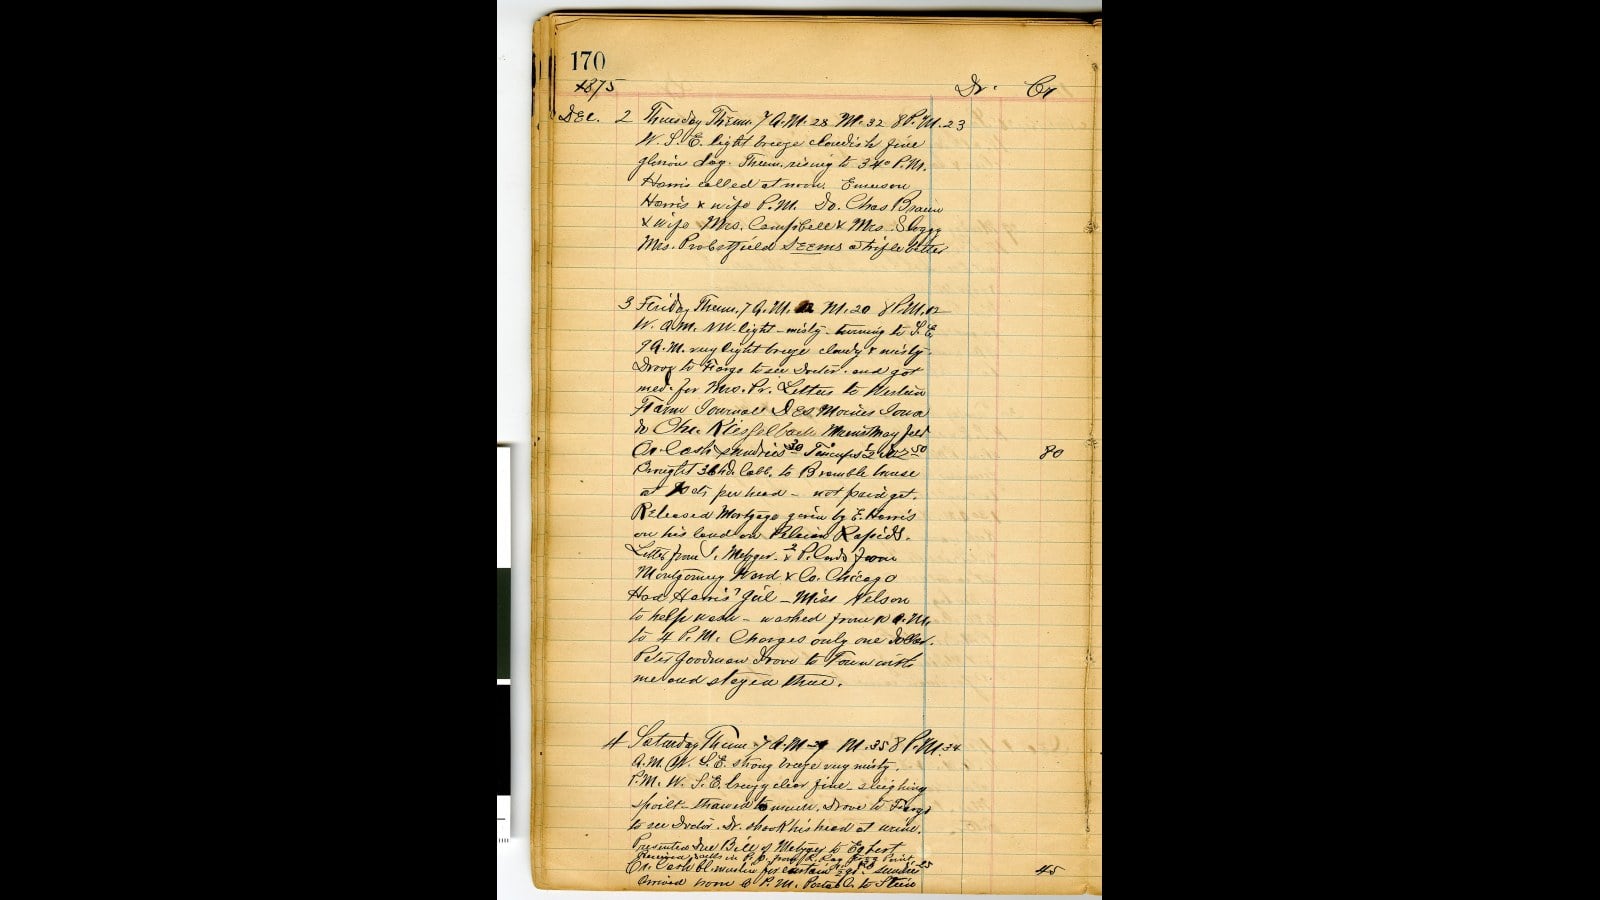 170
1875
Dr. Cr
Dec. 2 Thursday Therm. 7 A.M. 28 M. 32 8 P.M. 23
W. S.E. light breeze cloudish fine
glorious day. Therm. rising to 34° P.M.
Harris called at noon. Emerson
Harris & wife P.M. Do. Chas Brown
& wife Mrs. Campbell & Mrs. Sloggy
Mrs. Probstfield seems a trifle better
3 Friday Therm. 7 A.M. 12 M. 20 8 P.M. 12
W. a.m. NW. light - misty - turning to S.E.
9 A.M. very light breeze cloudy & misty.
Drove to Fargo to see Doctor and got
med. for Mrs. Pr. Letters to Western
Farm Journal Des Moines Iowa
& Chr. Kiesselbach
Cr. Cash sundries 30 50 80
Brought Cabb. to Bramble house
at cts per head - not paid yet.
Released Mortgage given by E. Harris
on his land on Pelican Rapids.
Letter from J. Metzger. 2 P. Cards from
Montgomery Ward & Co. Chicago
Had Harris' girl - Miss Nelson
to help wash - washed from 10 A.M.
to 4 P.M. Charges only one dollar.
Peter Goodman drove to Town with
me and stayed there.
4 Saturday Therm 7 A.M. M. 35 8 P.M. 34
A.M. W. S.E. strong breeze very misty.
P.M. W. S.E. breezy clear fine - sleighing
spoilt - thawed to much. Drove to Fargo
to see Doctor. Dr. shook his head at urine.
Presented Due Bill of Metzger to Egbert
Cr. Cash bl. muslin for curtain sundries 25 45
Arrived home P.M. Postal C. to Stein